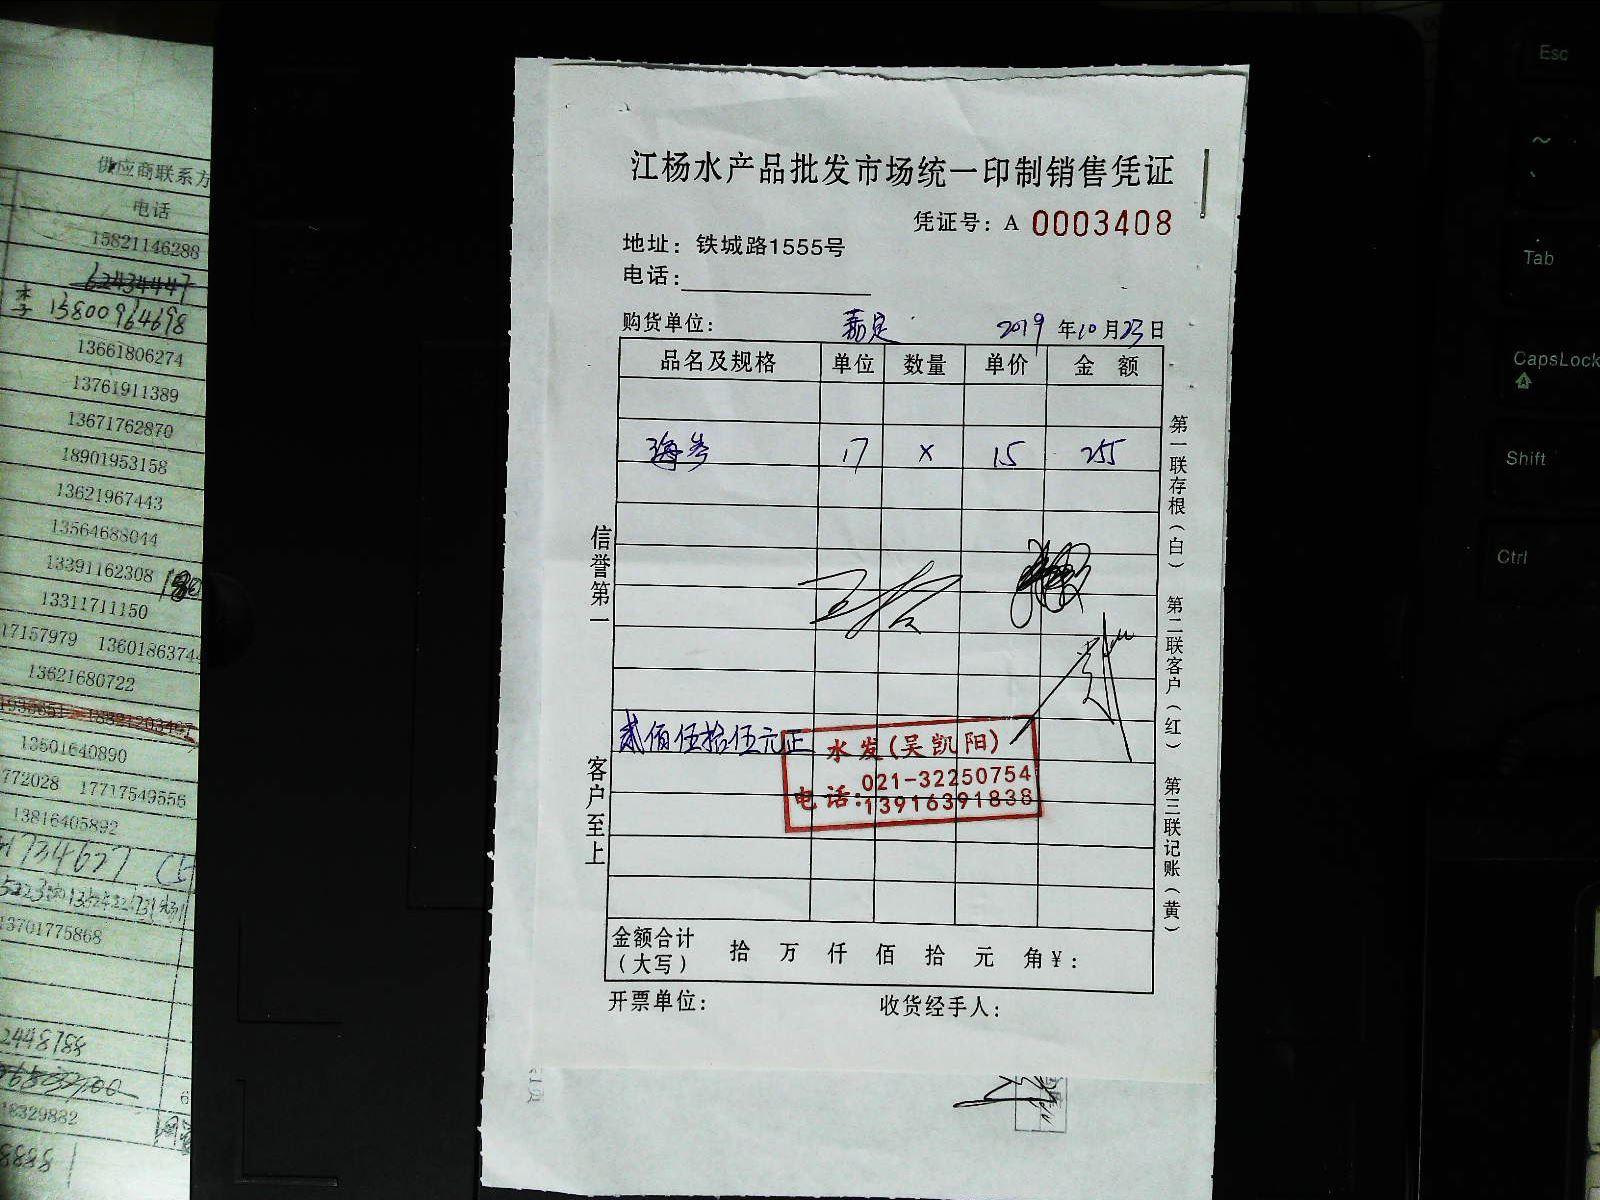 江杨水产品批发市场统一印制销售凭证
凭证号：A 0003408
地址：铁城路1555号
电话：
购货单位： 嘉定 2019 年 10 月 23 日
品名及规格 单位 数量 单价 金 额
海参 17 × 15 255
贰佰伍拾伍元正
水发(吴凯阳)
电话:021-32250754
13916391838
金额合计（大写） 拾 万 仟 佰 拾 元 角 ¥：
开票单位： 收货经手人：
信誉第一 客户至上
第一联存根（白） 第二联客户（红） 第三联记账（黄）
供应商联系方
电话
15821146288
62434447
李 13800964698
13661806274
13761911389
13671762870
18901953158
13621967443
13564688044
13391162308
13311711150
17157979 136018637
13621680722
13501640890
772028 17717549556
13816405892
13701775868
2448788
18329882
8888
Esc
~
Tab
CapsLock
A
Shift
Ctrl